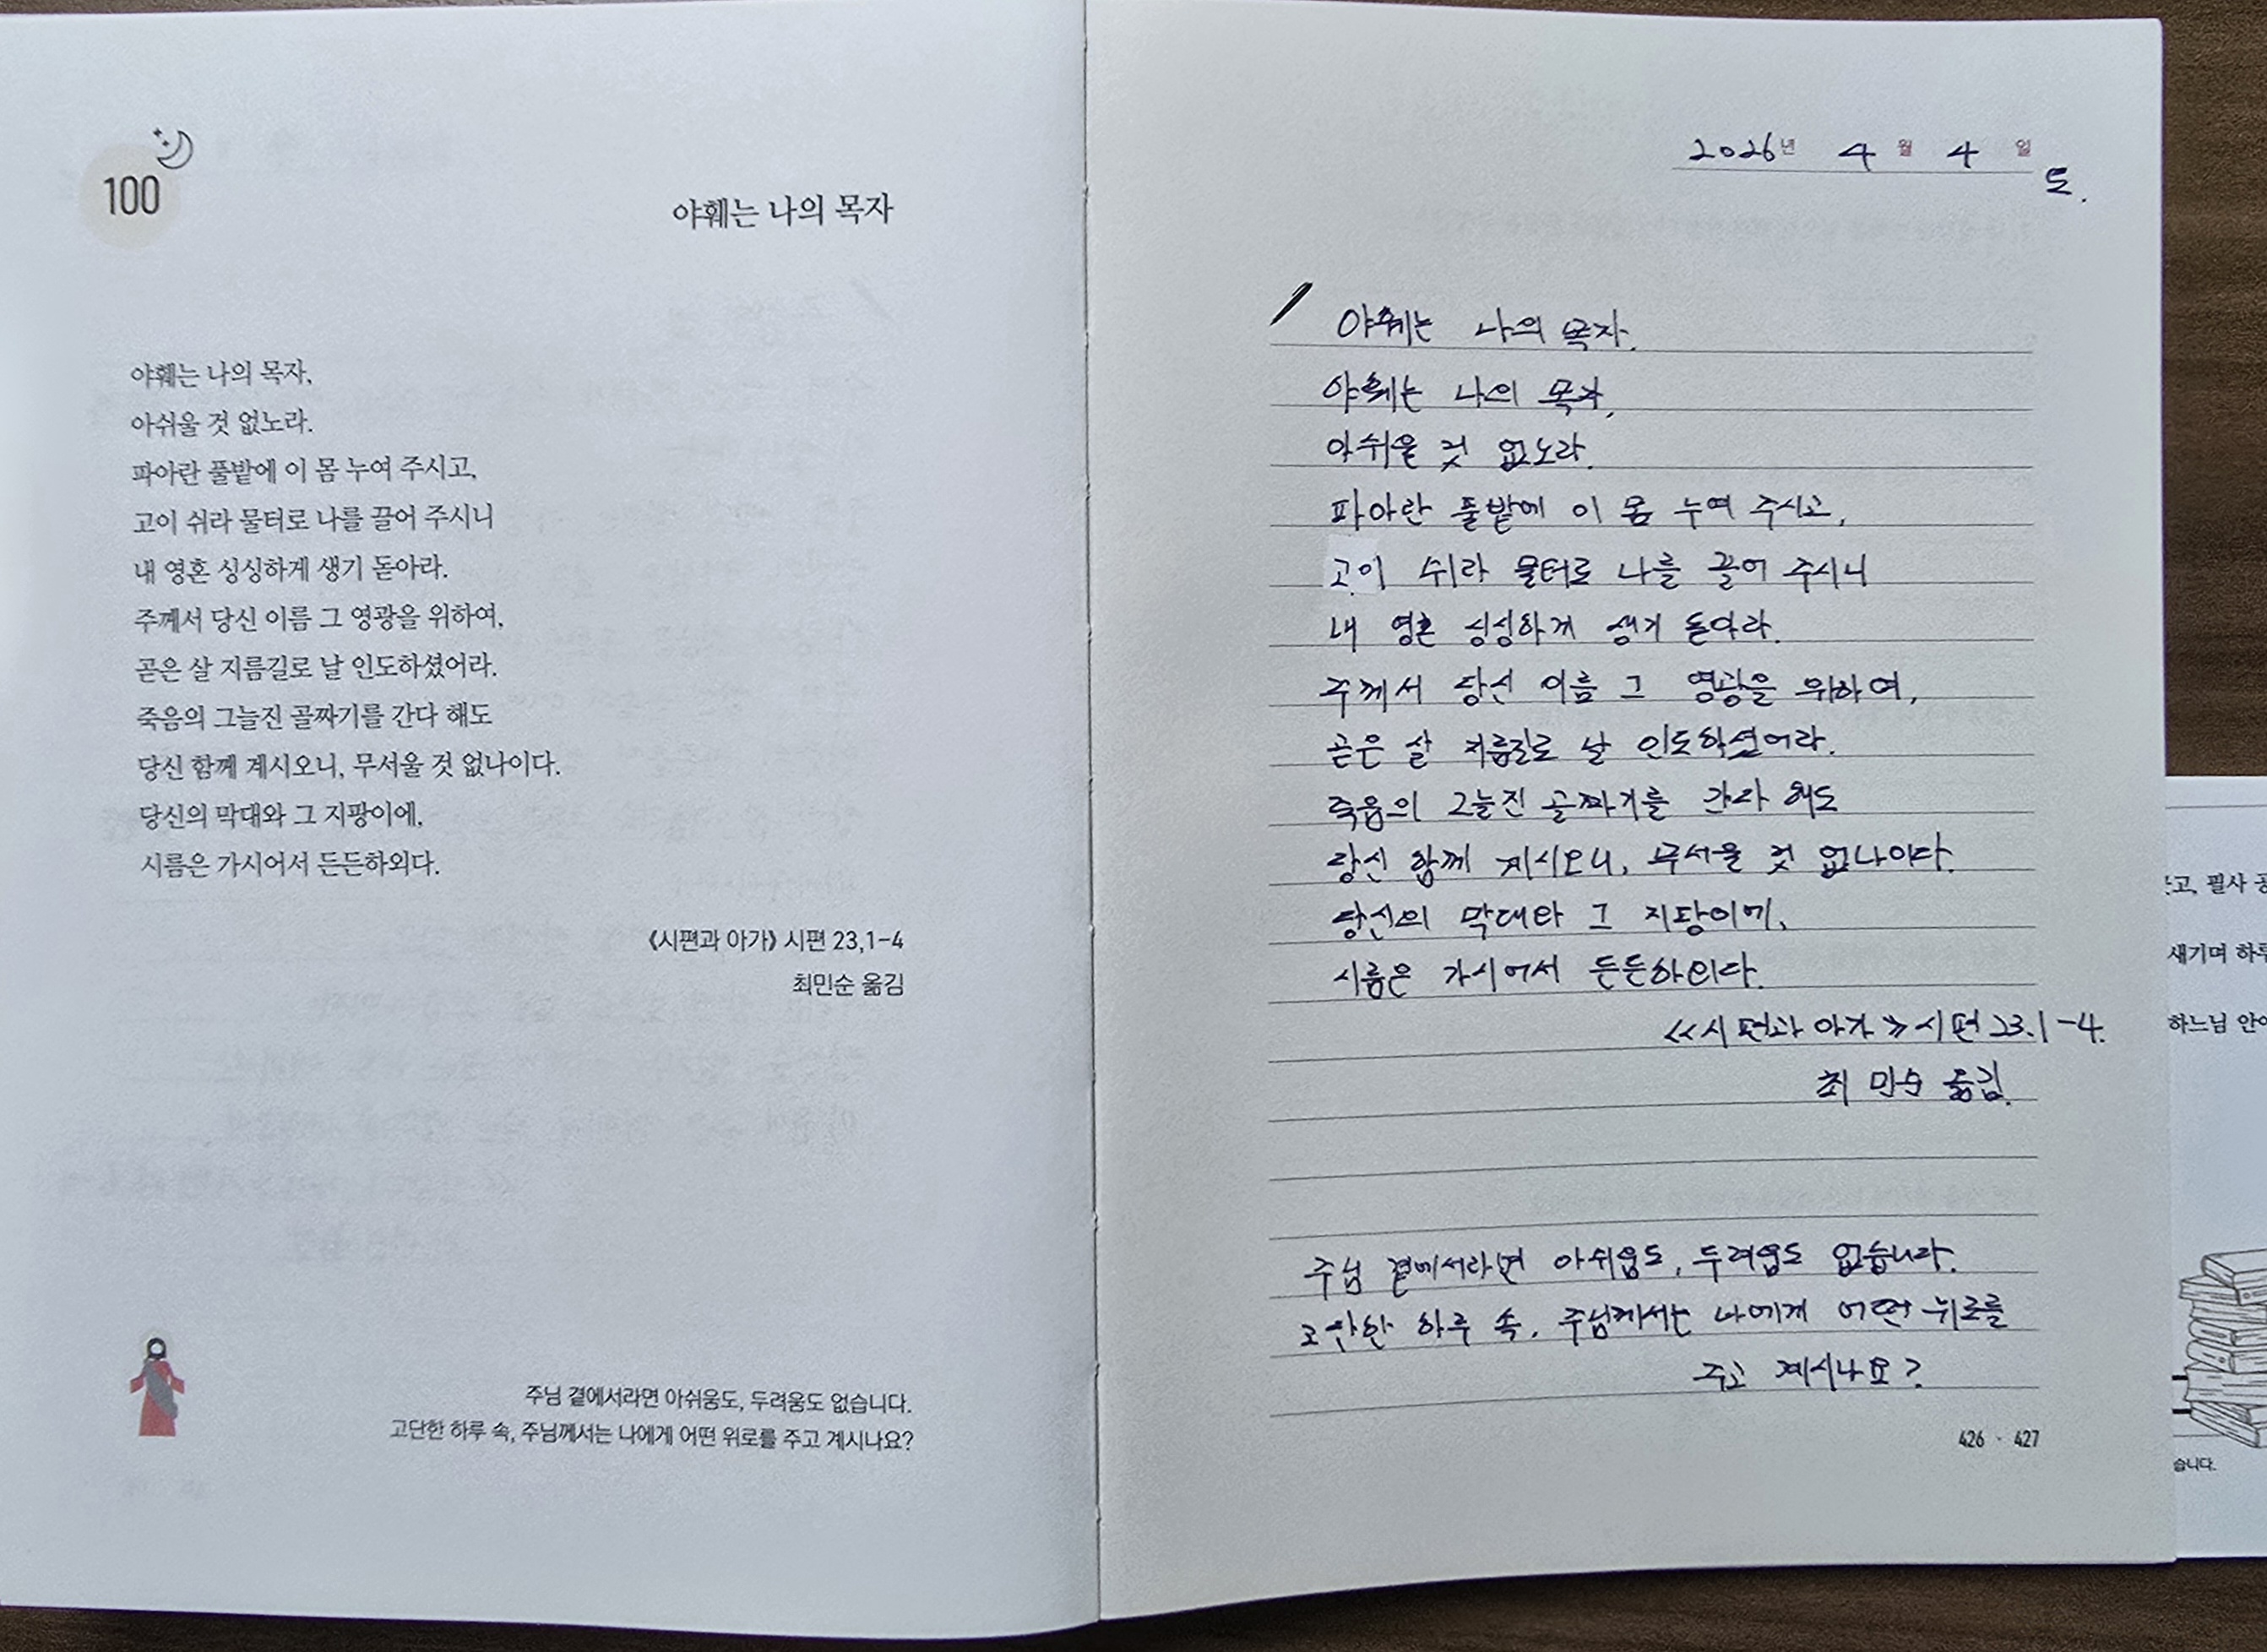 100
야훼는 나의 목자
야훼는 나의 목자,
아쉬울 것 없노라.
파아란 풀밭에 이 몸 누여 주시고,
고이 쉬라 물터로 나를 끌어 주시니
내 영혼 싱싱하게 생기 돋아라.
주께서 당신 이름 그 영광을 위하여,
곧은 살 지름길로 날 인도하셨어라.
죽음의 그늘진 골짜기를 간다 해도
당신 함께 계시오니, 무서울 것 없나이다.
당신의 막대와 그 지팡이에,
시름은 가시어서 든든하외다.
《시편과 아가》 시편 23,1-4
최민순 옮김
주님 곁에서라면 아쉬움도, 두려움도 없습니다.
고단한 하루 속, 주님께서는 나에게 어떤 위로를 주고 계시나요?
2026년 4월 4일
토.
야훼는 나의 목자.
야훼는 나의 목자,
아쉬울 것 없노라.
파아란 풀밭에 이 몸 누여 주시고,
고이 쉬라 물터로 나를 끌어 주시니
내 영혼 싱싱하게 생기 돋아라.
주께서 당신 이름 그 영광을 위하여,
곧은 살 지름길로 날 인도하셨어라.
죽음의 그늘진 골짜기를 간다 해도
당신 함께 계시오니, 무서울 것 없나이다.
당신의 막대와 그 지팡이에,
시름은 가시어서 든든하외다.
《시편과 아가》 시편 23.1-4.
최민순 옮김.
주님 곁에서라면 아쉬움도, 두려움도 없습니다.
고단한 하루 속, 주님께서는 나에게 어떤 위로를
주고 계시나요?
426 · 427
고, 필사
새기며
하느님
습니다.